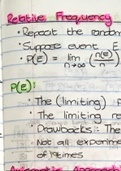 Relative Frequency
• Repeat the random
• Suppose event E
• P(E) = lim n→∞ (n(E)/n)
P(E):
• The (limiting) f
• The limiting re
• Drawbacks: The
• Not all experime
of times